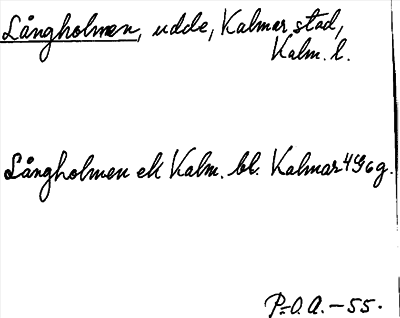 Långholmen, udde, Kalmar stad,
Kalm. l.
Långholmen ek Kalm. bl. Kalmar 4G6g.
P.-O. A. - 55.